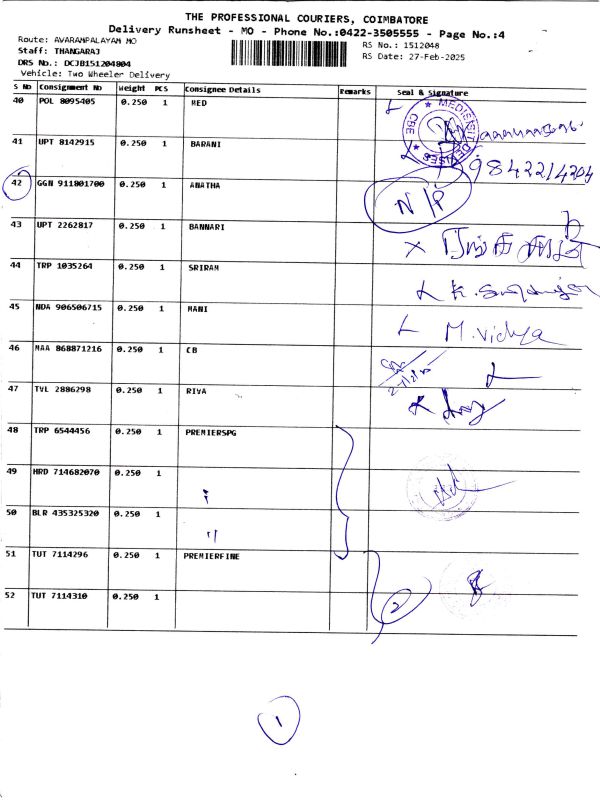 THE PROFESSIONAL COURIERS, COIMBATORE
Delivery Runsheet - MO - Phone No.:0422-3505555 - Page No.:4
Route: AVARAMPALAYAM MO
RS No.: 1512048
Staff: THANGARAJ
RS Date: 27-Feb-2025
DRS No.: DCJB151204804
Vehicle: Two Wheeler Delivery
S No Consignment No Weight PCS Consignee Details Remarks Seal & Signature
40 POL 8095405 0.250 1 MED
41 UPT 8142915 0.250 1 BARANI
9842214204
42 GGN 911801700 0.250 1 ANATHA N/P
43 UPT 2262817 0.250 1 BANNARI
44 TRP 1035264 0.250 1 SRIRAM K.
45 NDA 906506715 0.250 1 MANI M. Vidya
46 MAA 868871216 0.250 1 CB
47 TVL 2886298 0.250 1 RIYA
48 TRP 6544456 0.250 1 PREMIERSPG
49 HRD 714682070 0.250 1
50 BLR 435325320 0.250 1 "
51 TUT 7114296 0.250 1 PREMIERFINE
52 TUT 7114310 0.250 1 2
1